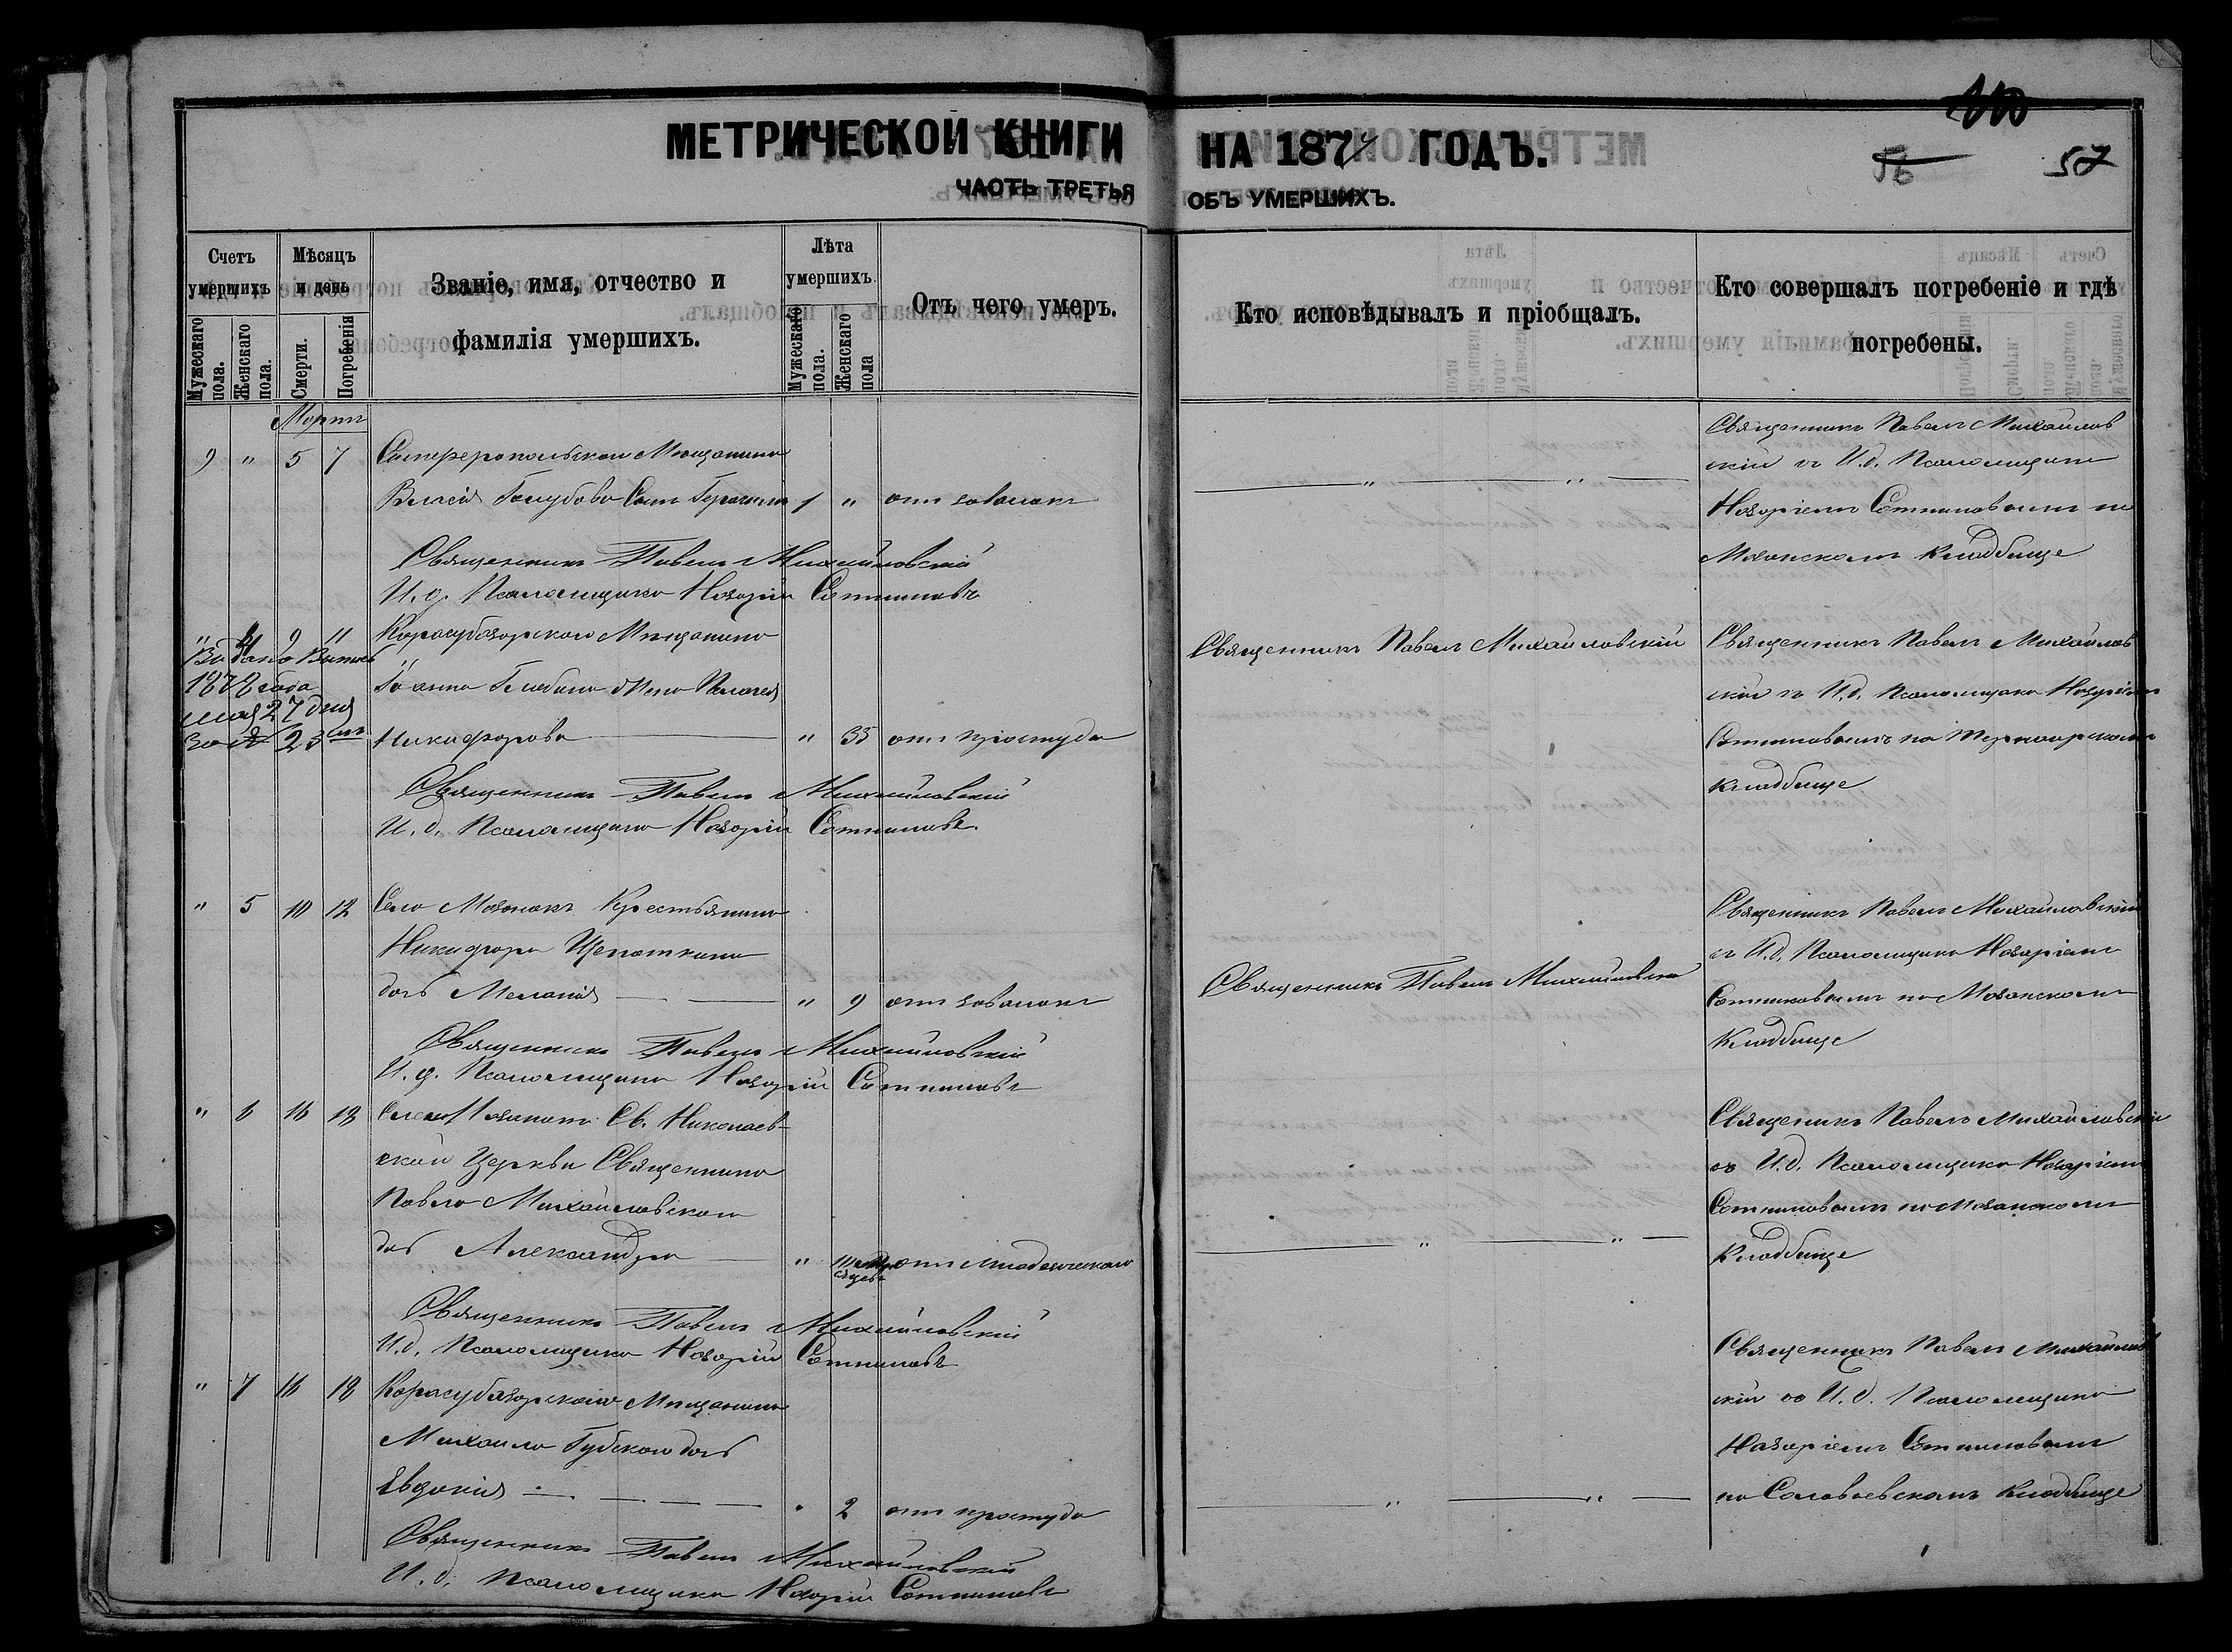 МЕТРИЧЕСКОЙ КНИГИ НА 1874 ГОДЪ.
ЧАСТЬ ТРЕТЬЯ ОБЪ УМЕРШИХЪ.
57
Счетъ умершихъ
Мужескаго пола.
Женскаго пола.
Мѣсяцъ и день
Смерти.
Погребенія
Званіе, имя, отчество и
фамилія умершихъ.
Лѣта умершихъ.
Мужескаго пола.
Женскаго пола
Отъ чего умеръ.
Кто исповѣдывалъ и пріобщалъ.
Кто совершалъ погребеніе и гдѣ
погребены.
Мартъ
9 " 5 7 Симферопольскаго Мещанина
Власія Голубова Сынъ 1 " отъ
Священникъ Павелъ Михайлов
скій съ И.д. Псаломщика
Назаріемъ Сотниковымъ на
Мазанскомъ Кладбище
Священникъ Павелъ Михайловскій
И.д. Псаломщика Назарій Сотниковъ
" 4 9 11 Карасубазарскаго Мещанина
1878 года
мая 27 дня
за № 23
Іоанна жена Пелагея
Никифорова " 35 отъ простуды
Священникъ Павелъ Михайловскій
Священникъ Павелъ Михайлов
скій съ И.д. Псаломщика Назаріемъ
Сотниковымъ на
кладбище
Священникъ Павелъ Михайловскій
И.д. Псаломщика Назарій Сотниковъ
" 5 10 12 Села Мазанокъ Крестьянина
Никифора Щепоткина
дочь Меланія " 9 отъ
Священникъ Павелъ Михайловскій
Священникъ Павелъ Михайловскій
съ И.д. Псаломщика Назаріемъ
Сотниковымъ на Мазанскомъ
Кладбище
Священникъ Павелъ Михайловскій
И.д. Псаломщика Назарій Сотниковъ
" 6 16 18 Села Мазанокъ Св. Николаев-
ской Церкви Священника
Павла Михайловскаго
дочь Александра " отъ младенческой
Священникъ Павелъ Михайловскій
съ И.д. Псаломщика Назаріемъ
Сотниковымъ на Мазанскомъ
Кладбище
Священникъ Павелъ Михайловскій
И.д. Псаломщика Назарій Сотниковъ
" 7 16 18 Карасубазарскаго Мещанина
Михаила Губскаго дочь
Евдокія " 2 отъ простуды
Священникъ Павелъ Михайлов
скій съ И.д. Псаломщика
Назаріемъ Сотниковымъ
на Кладбище
Священникъ Павелъ Михайловскій
И.д. Псаломщика Назарій Сотниковъ